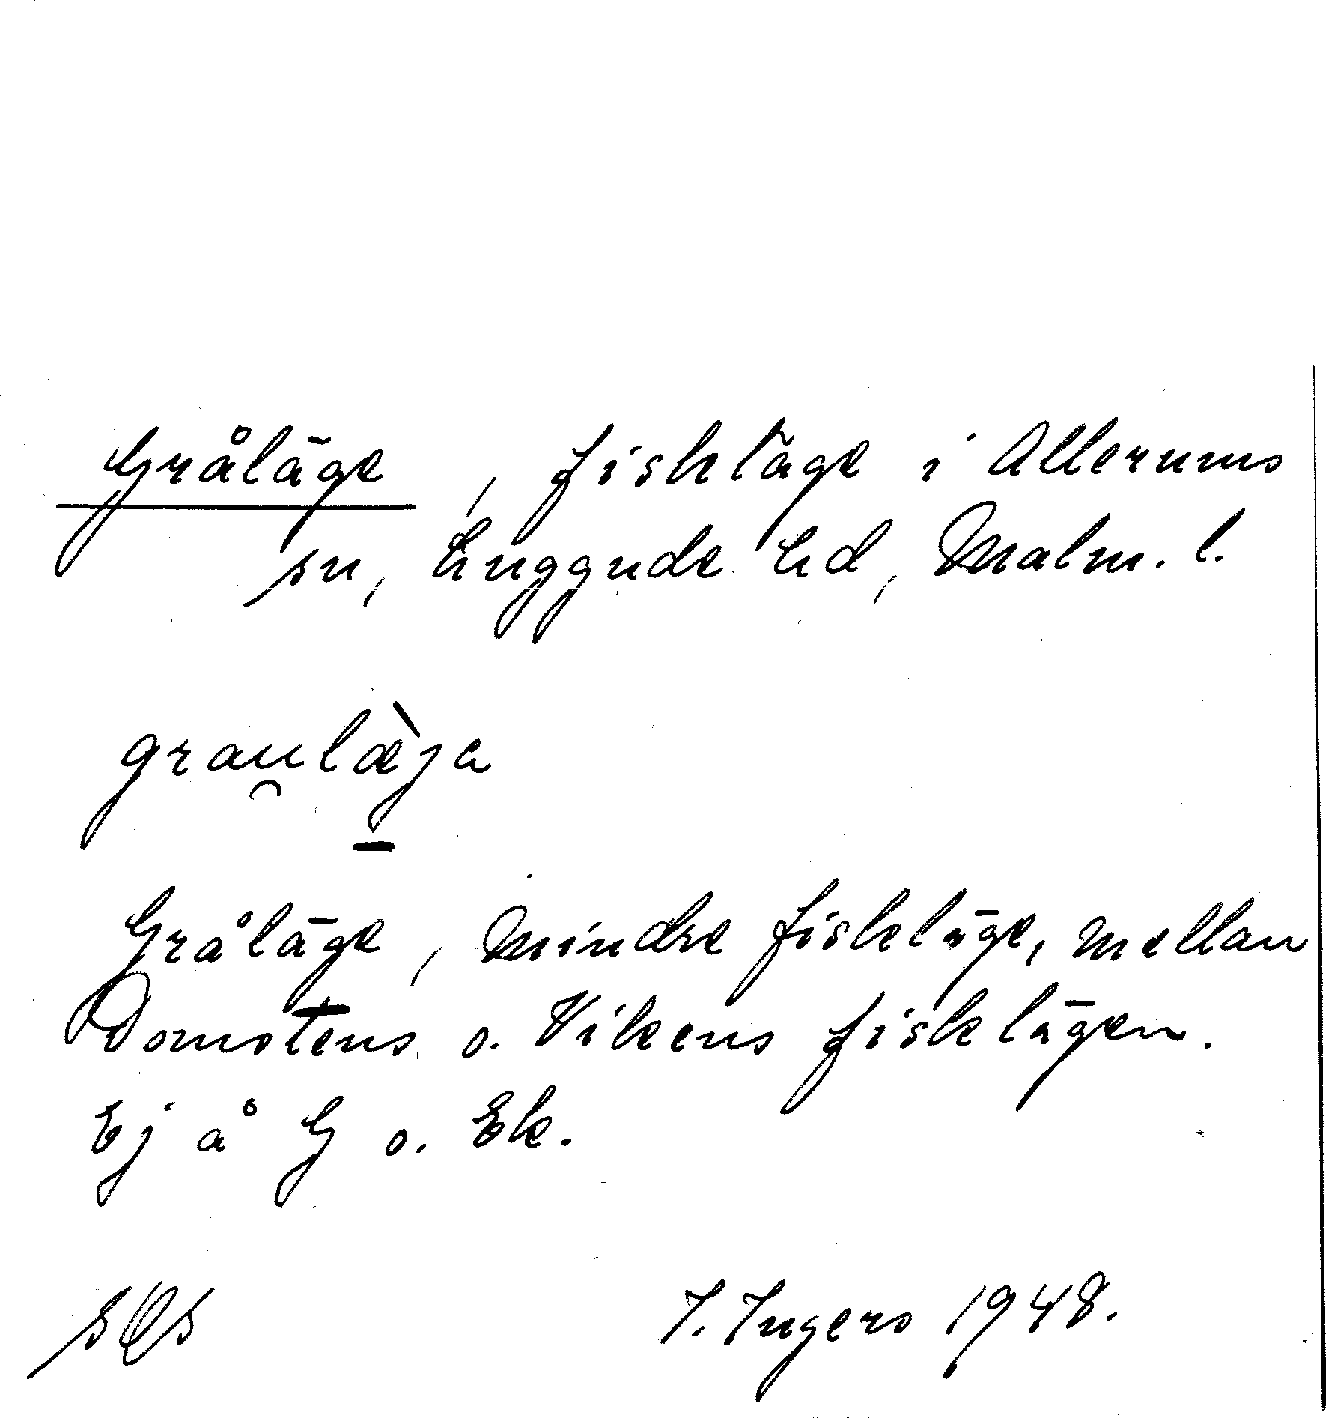 Gråläge, fiskläge i Allerums
sn, Luggude hd, Malm. l.
grau̯læ̀ja
Gråläge, mindre fiskeläge, mellan
Domstens o. Vikens fisklägen.
Ej å G o. Ek.
I. Ingers 1948.